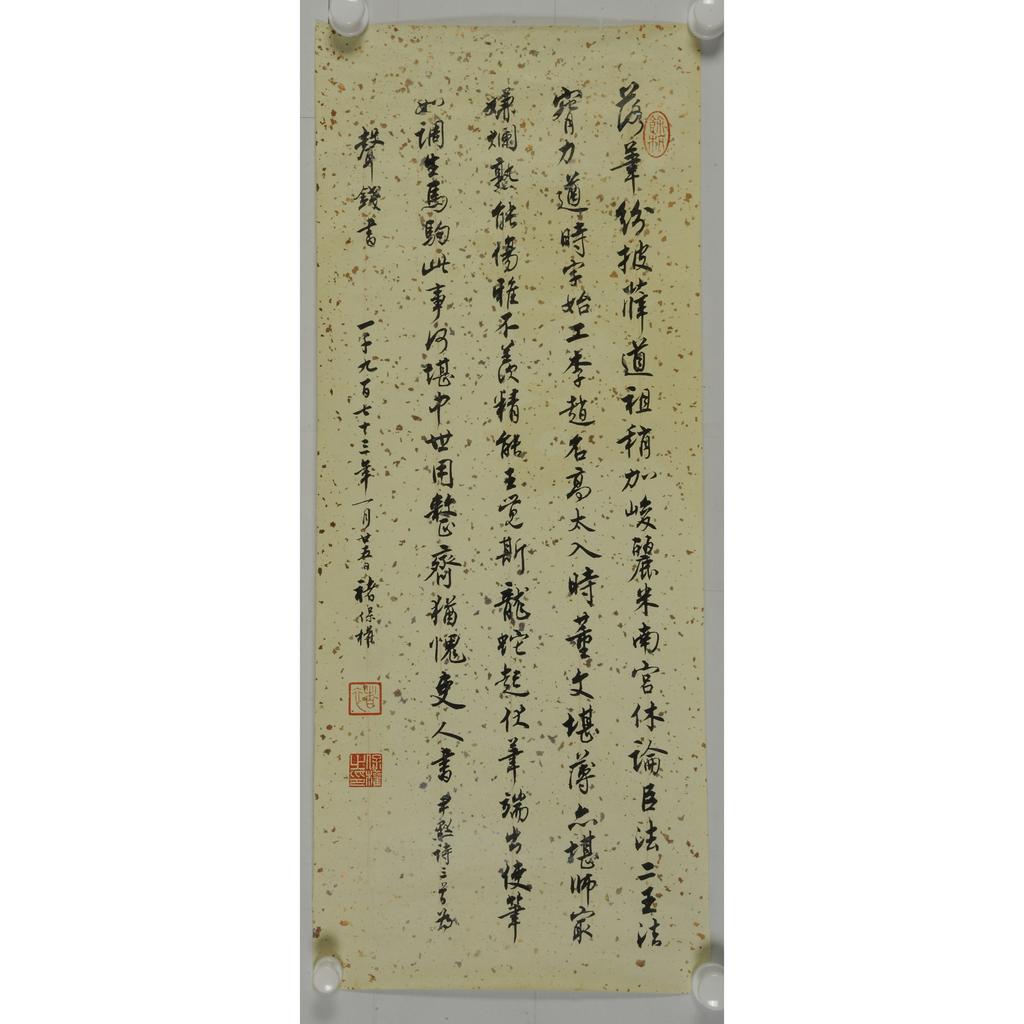 落筆紛披薛道祖稍加峻麗米南宮休論臣法二王法
腕力遒時字始工李趙名高太入時董文堪薄亦堪師最
嫌爛熟能傷雅不羨精能王覺斯龍蛇起伏筆端出使筆
如調生馬駒此事何堪中世用整齊猶愧吏人書尹默詩三首為
聲錢書
一千九百七十三年一月廿五日褚保權
保權之印